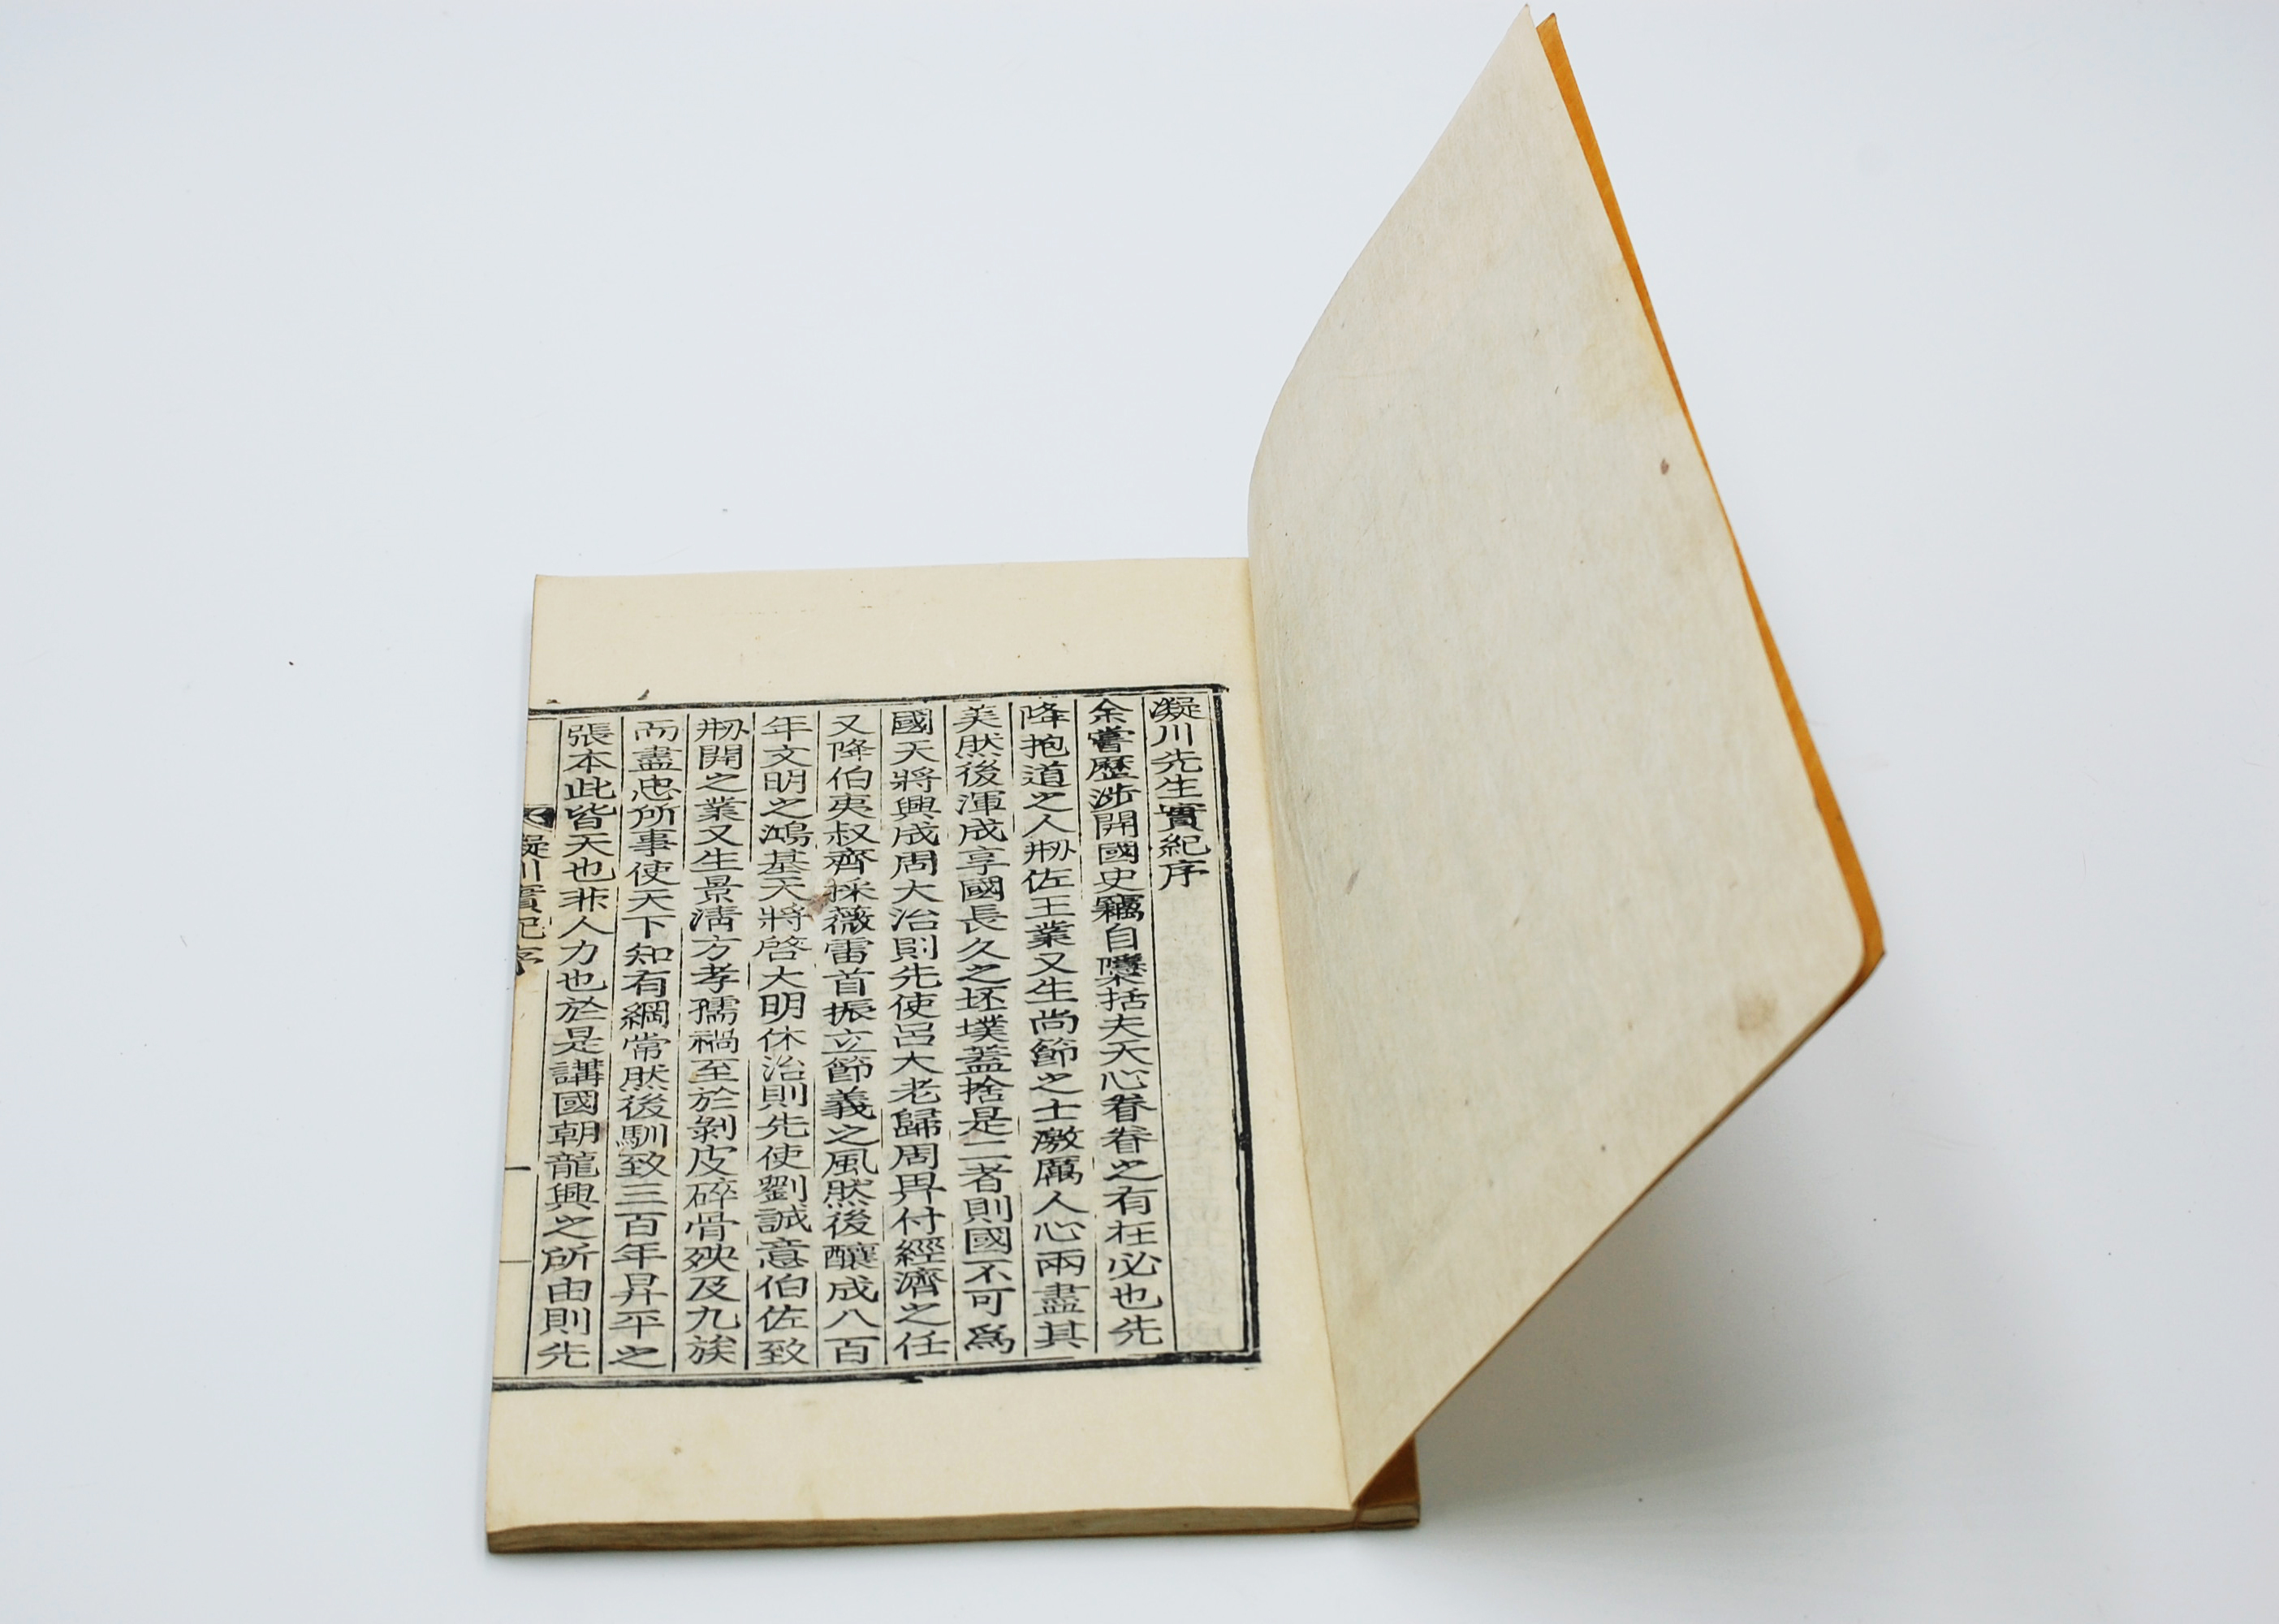 凝川先生實紀序
余嘗歷涉開國史竊自櫽括夫天心眷眷之有在必也先
降抱道之人刱佐王業又生尚節之士激厲人心兩盡其
美然後渾成享國長久之坯墣蓋捨是二者則國不可爲
國天將興成周大治則先使呂大老歸周畀付經濟之任
又降伯夷叔齊採薇雷首振立節義之風然後釀成八百
年文明之鴻基天將啓大明休治則先使劉誠意伯佐致
刱開之業又生景淸方孝孺禍至於剝皮碎骨殃及九族
而盡忠所事使天下知有綱常然後馴致三百年昇平之
張本此皆天也非人力也於是講國朝龍興之所由則先
凝川實紀序
一